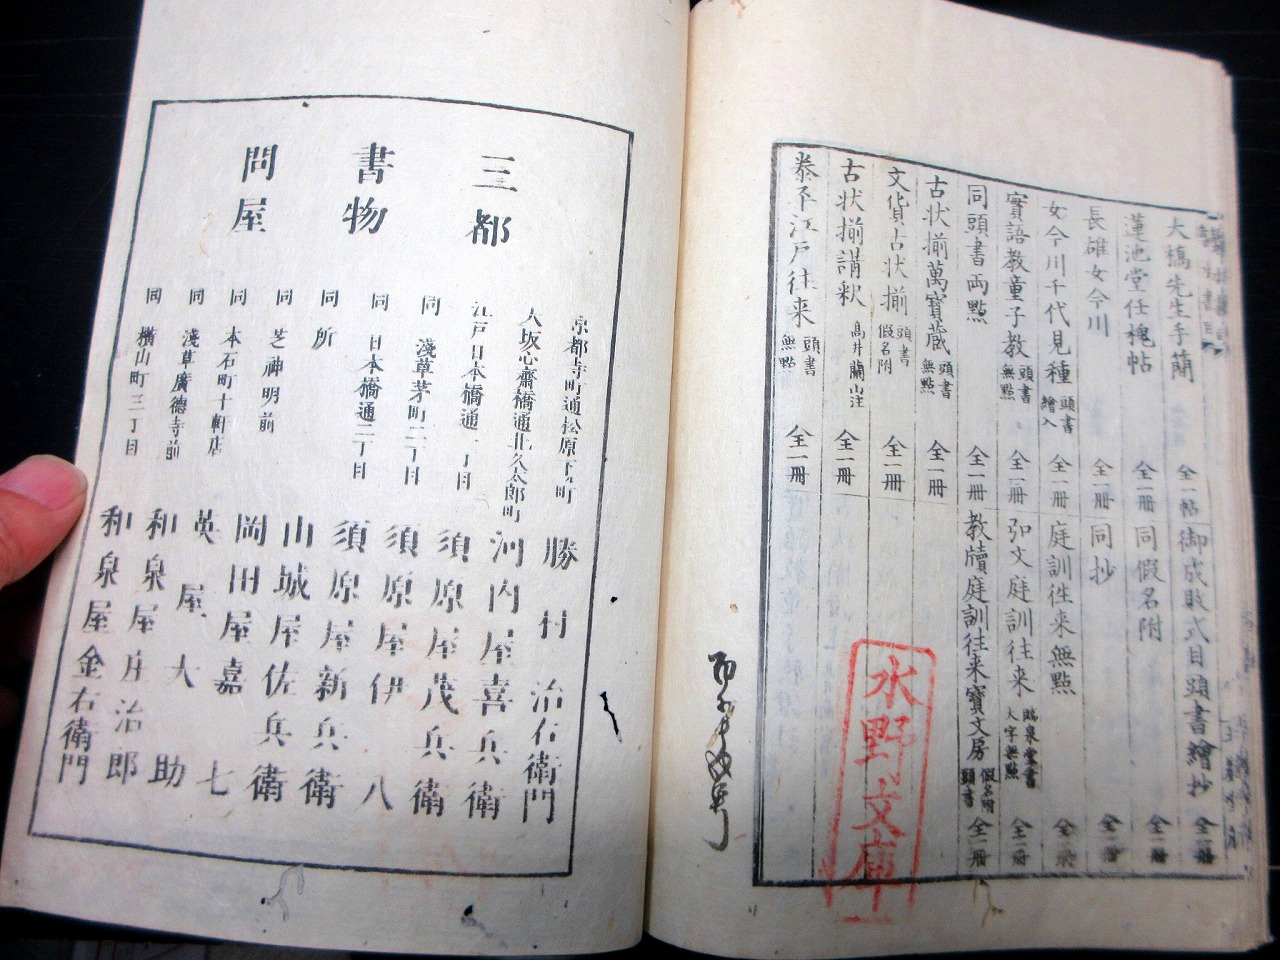 大橋先生手簡 全一帖
蓮池堂任槐帖 全一冊
長雄女今川 全一冊
女今川千代見種 頭書繪入 全一冊
實語教童子教 頭書無點 全一冊
同頭書両點 全一冊
古状揃萬寳蔵 頭書無點 全一冊
文貨古状揃 頭書假名附 全一冊
古状揃講釈 髙井蘭山注 全一冊
泰平江戸往来 頭書無點 全一冊
御成敗式目頭書繪抄 全一冊
同假名附 全一冊
同抄 全一冊
庭訓往来無點 全一冊
弘文庭訓往来 臨泉堂書大字無點 全一冊
教牘庭訓往来寳文房 假名附頭書 全一冊
水野文庫
三都
書物
問屋
京都寺町通松原下ル町 勝村治右衛門
大坂心齋橋通北久太郎町 河内屋喜兵衛
江戸日本橋通一丁目 須原屋茂兵衛
同 淺草茅町二丁目 須原屋伊八
同 日本橋通二丁目 須原屋新兵衛
同所 山城屋佐兵衛
同 芝神明前 岡田屋嘉七
同 本石町十軒店 英屋大助
同 淺草廣德寺前 和泉屋庄治郎
同 横山町三丁目 和泉屋金右衛門